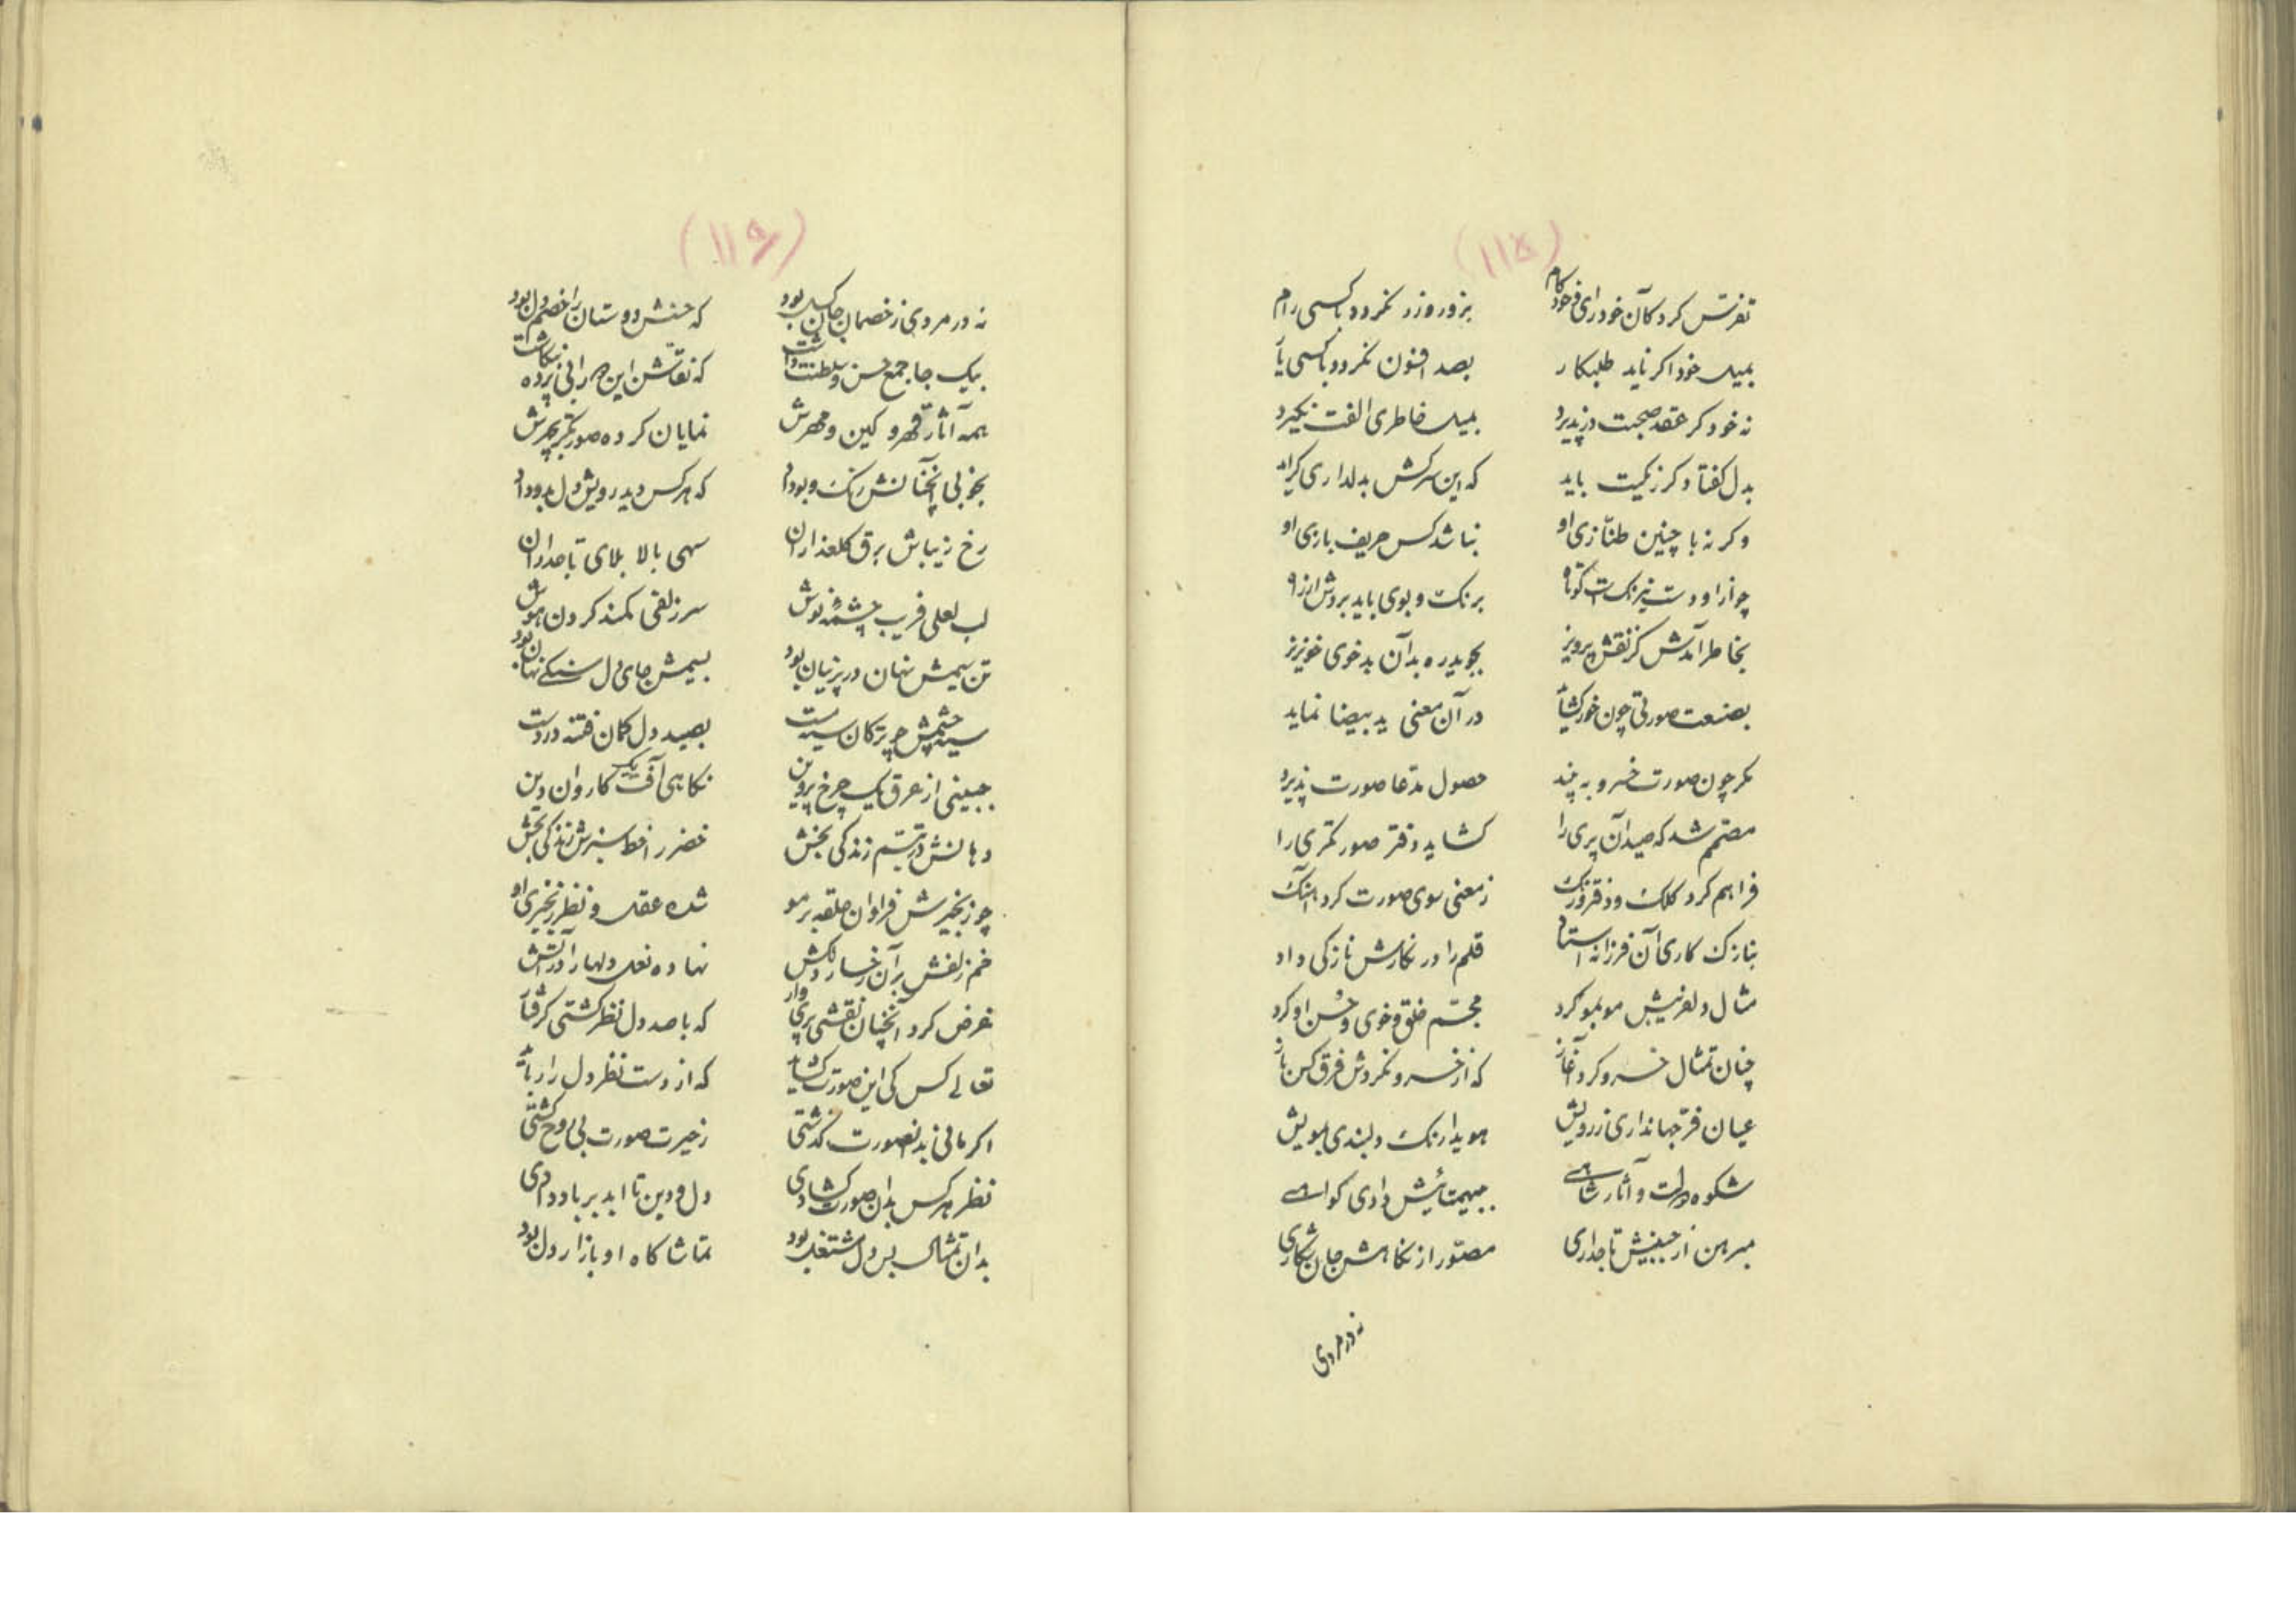 (۱۱۸)
تفرّس کرد کان خودرای خودکام بزور و زر نگردد با کسی رام
بمیل خود اگر ناید طلبکار بصد افسون نگردد با کسی یار
نه خود گر عقد صحبت در پذیرد بمیل خاطری الفت نگیرد
بدل گفتا دگر رنگیت باید که این سرکش بدلداری گراید
و گر نه با چنین طنّازی او نباشد کس حریف بازی او
چو از او دست نیرنگست کوتاه برنگ و بوی باید بردش از راه
بخاطر آمدش کز نقش پرویز بجوید ره بدآن بدخوی خونریز
بصنعت صورتی چون خور گشاید در آن معنی ید بیضا نماید
مگر چون صورت خسرو به بیند حصول مدّعا صورت پذیرد
مصمّم شد که صید آن پری را گشاید دفتر صورتگری را
فراهم کرد کلک و دفتر و رنگ ز معنی سوی صورت کرد آهنگ
بنازک کاری آن فرزانه استاد قلم را در نگارش نازکی داد
مثال دلفریبش مو بمو کرد مجسّم خلق و خوی و حسن او کرد
چنان تمثال خسرو کرد آغاز که از خسرو نکردش فرق کس باز
عیان فرّ جهانداری ز رویش هویدا رنگ دلبندی بمویش
شکوه دولت و آثار شاهی بهیهتائیش دادی گواهی
مبرهن از جبینش تاجداری مصوّر از نگاهش جان شکاری
نه در مردی
(۱۱۹)
نه در مردی ز خصمان جان گسل بود که حسنش دوستان را خصم دل بود
بیک جا جمع حسن و سلطنت داشت که نقّاش این هر را بی پرده نگاشت
همه آثار قهر و کین و مهرش نمایان کرده صورتگر بچهرش
بخوبی آنچنانش رنگ و بو داد که هر کس دید رویش دل بدو داد
رخ زیباش برق گلعذاران سهی بالا بلای تاجداران
لب لعلی فریب چشمهٔ نوش سر زلفی کمند گردن هوش
تن سیمش نهان در پرنیان بود بسیمش جای دل سنگی نهان بود
سیه چشمش چو ترکان سیه مست بصید دل کمان فتنه در دست
جبینی از عرق یک چرخ پروین نگاهی آفت یک کاروان دین
دهانش در تبسّم زندگی بخش خضر را خط سبزش زندگی بخش
چو زنجیرش فراوان حلقه بر مو شده عقل و نظر زنجیری او
خم زلفش بر آن رخسار دلکش نهاده نعل دلها را در آتش
غرض کرد آنچنان نقشی پریوار که با صد دل نظر گشتی گرفتار
تعالی کس کی این صورت گشاید که از دست نظر دل را رباید
اگر مانی بدنصورت گذشتی ز حیرت صورت بی روح گشتی
نظر هر کس بدان صورت گشادی دل و دین تا ابد بر باد دادی
بدان تمثال بس دل مشتغل بود تماشاگاه او بازار دل بود